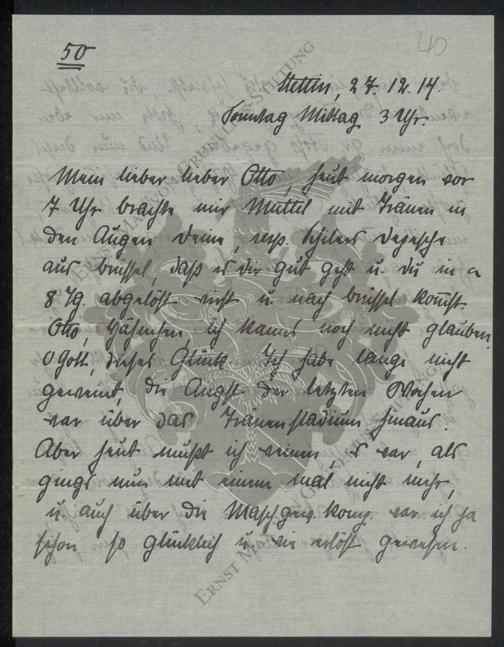 50
40
Stettin, 27. 12. 14.
Sonntag Mittag 3 Uhr.
Mein lieber lieber Otto, heut morgen vor
7 Uhr brachte mir Muttel mit Tränen in
den Augen Deine, resp. Depesche
aus Brüssel, daß es Dir gut geht u. Du in a
8 Tg. abgelöst wirst u. nach Brüssel kom̄st.
Otto, Hähnchen, ich kanns noch nicht glauben.
O Gott, dieses Glück. Ich habe lange nicht
geweint, die Angst der letzten Wochen
war über das Tränenstadium hinaus.
Aber heut mußt ich weinen, es war, als
gings nun mit einem mal nicht mehr,
u. auch über die Masch.gew.komp. war ich ja
schon so glücklich u. wie erlöst gewesen.
ERNST MA
STIFTUNG